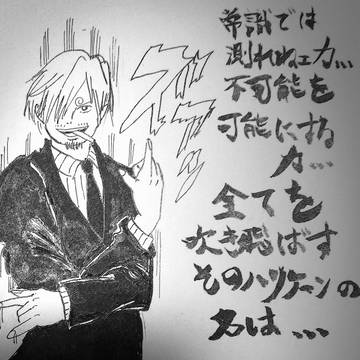 常識では
測れねェ力...
不可能を
可能にする
力...
全てを
吹き飛ばす
そのハリケーンの
名は...